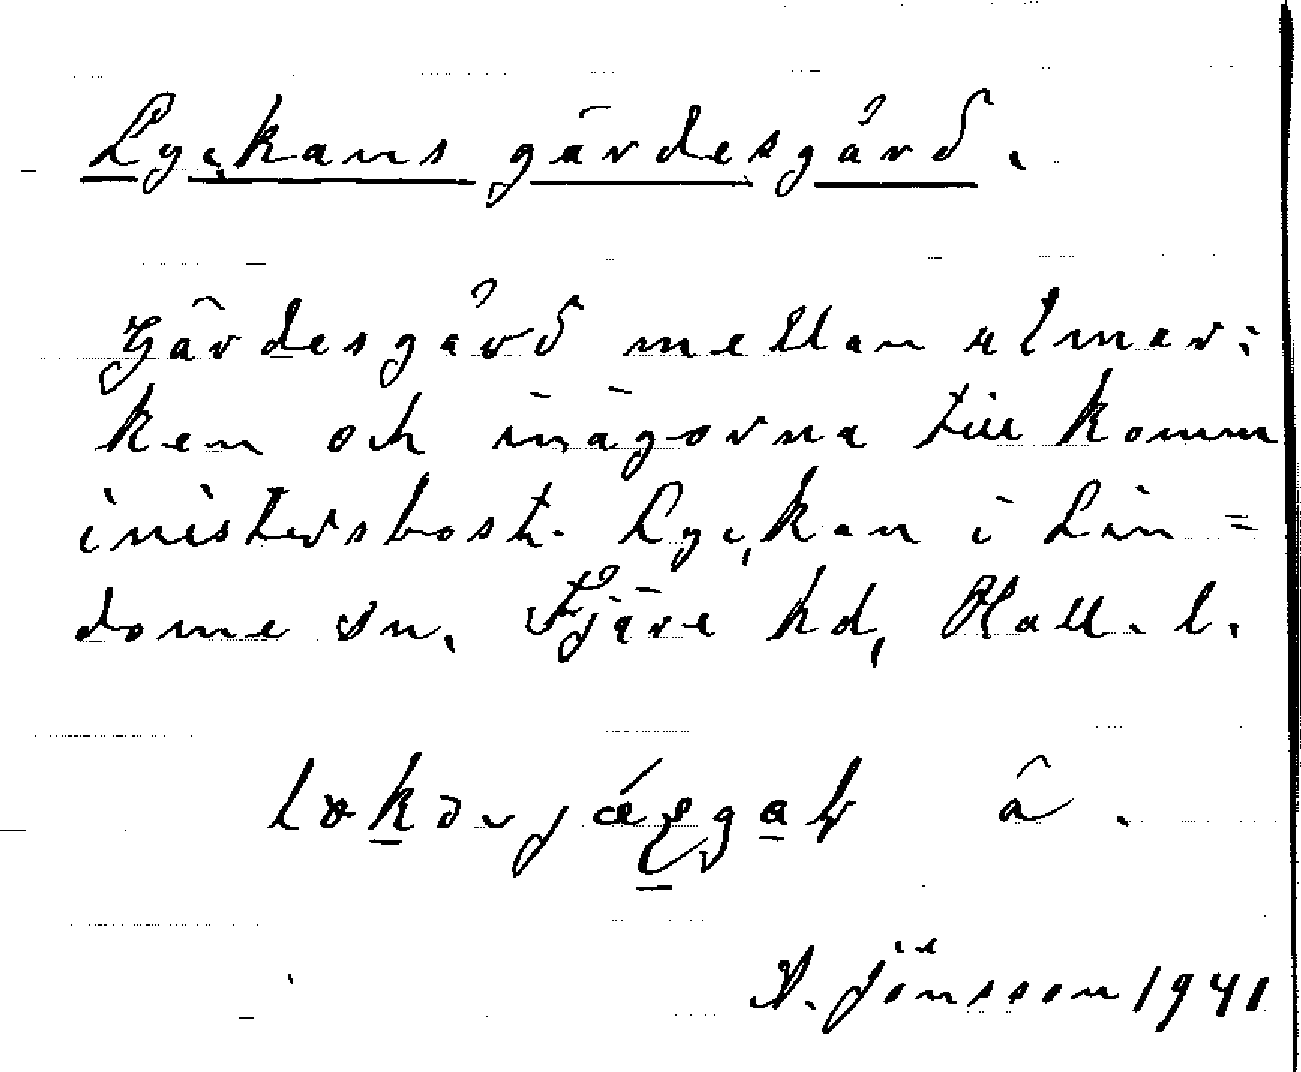 Lyckans gärdesgård.
Gärdesgård mellan utmar-
ken och inägorna till komm
inistersbost. Lyckan i Lin=
dome sn. Fjäre hd, Hall. l.
A. Jönsson 1941